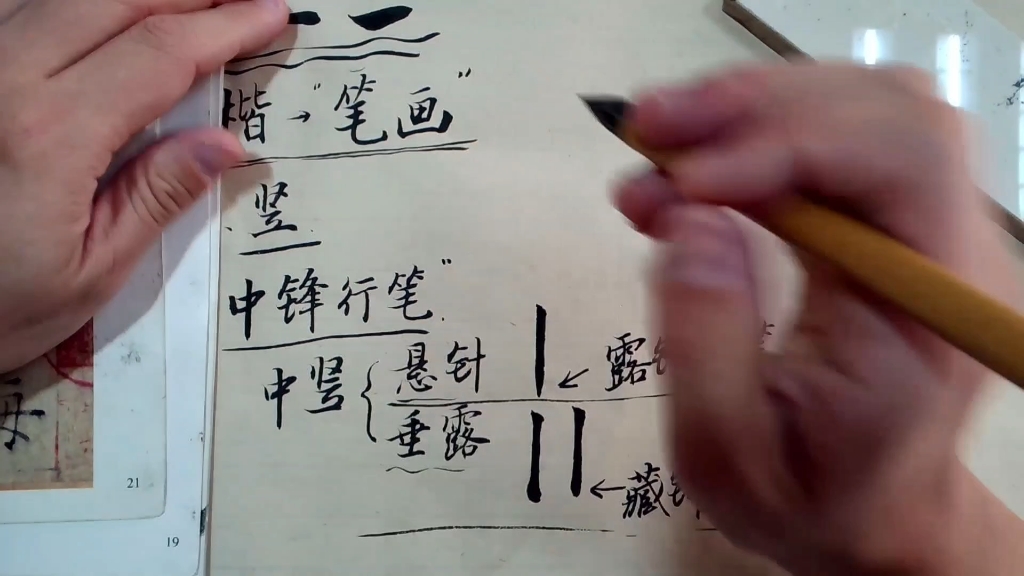 楷→"笔画"
竖
中锋行笔"
中竖{悬针
←露
垂露
←藏
21
19